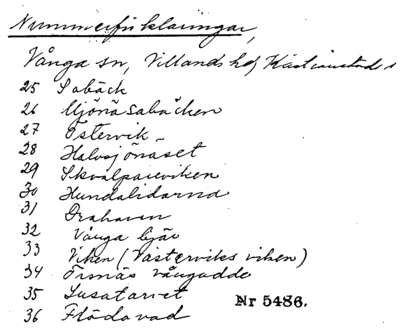 Nummerförklaringar,
Vånga sn, Villands hd, Kristianstads l
25 Sobäck
26 Mjönäsabäcken
27 Östervik
28 Halvsjönäset
29
30 Hundalidarna
31 Drahaven
32 Vånga bjär
33 Viken (Västerviks viken)
34 Furnäs vångudde
35 Lusatorvet
36 Flödavad
Nr 5486.